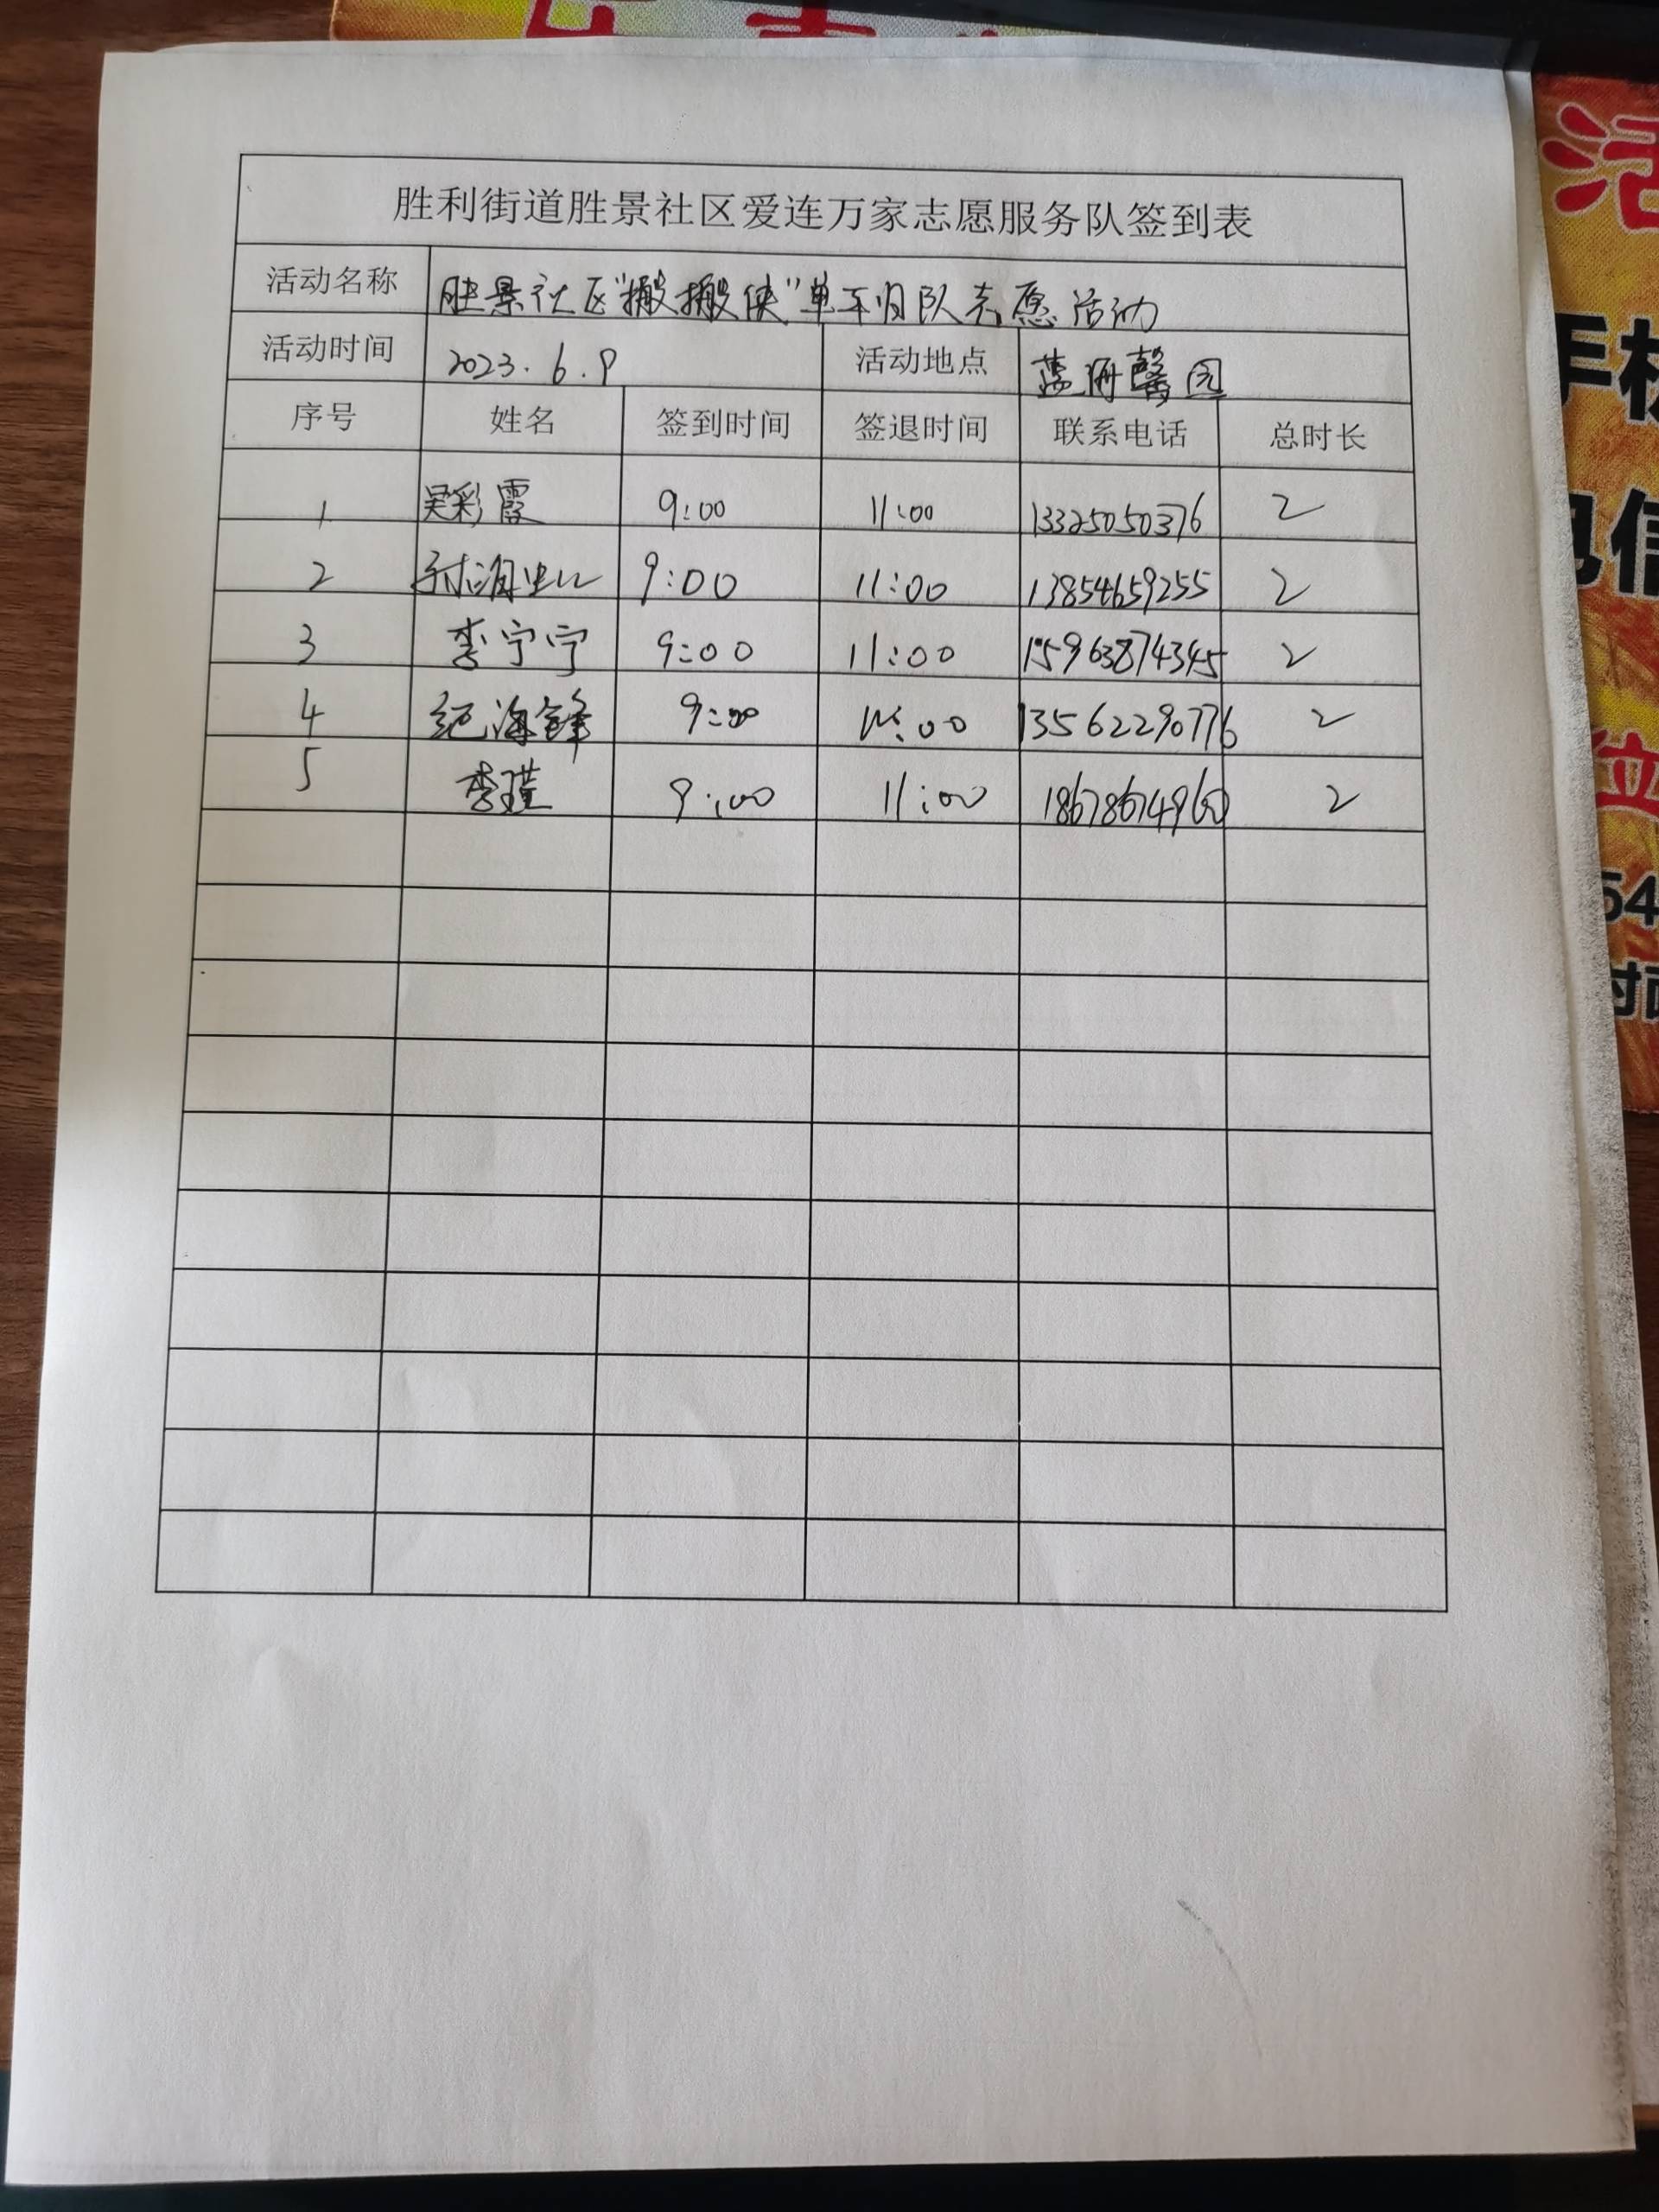 胜利街道胜景社区爱连万家志愿服务队签到表
活动名称 胜景社区"搬搬侠"单车归队志愿活动
活动时间 2023.6.9 活动地点 蓝海馨园
序号 姓名 签到时间 签退时间 联系电话 总时长
1 吴彩霞 9:00 11:00 13325050376 2
2 9:00 11:00 13854659255 2
3 李宁宁 9:00 11:00 15963874345 2
4 纪海锋 9:00 11:00 13562290776 2
5 李瑾 9:00 11:00 18678674960 2
活
手机
电信
位
54
对面